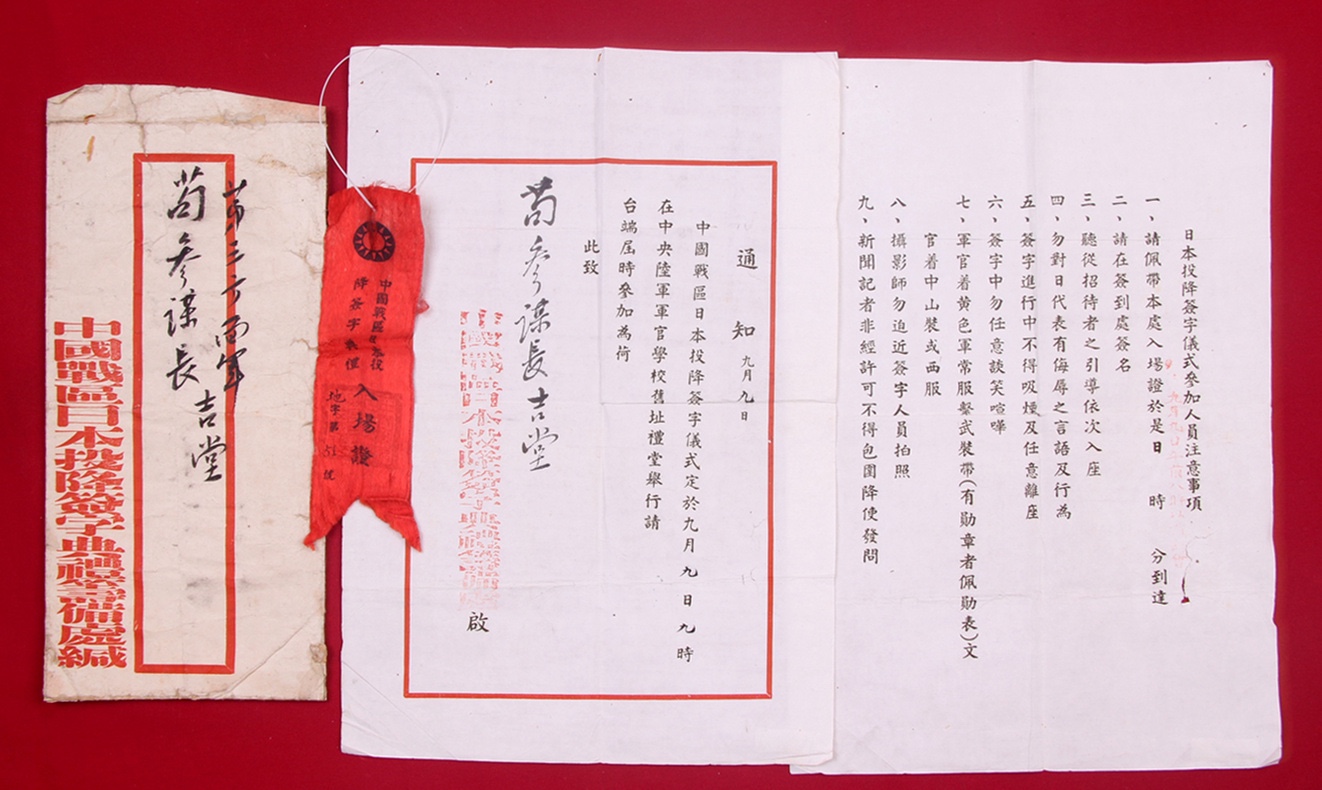 第三方面軍
苟參謀長吉堂
中國戰區日本投降簽字典禮籌備處緘
中國戰區日本投
降簽字典禮
入場證
地字第 號
通知 九月九日
中國戰區日本投降簽字儀式定於九月九日九時
在中央陸軍軍官學校舊址禮堂舉行請
台端屆時參加為荷
此致
苟參謀長吉堂
中國戰區日本投降簽字典禮籌備處 啟
日本投降簽字儀式參加人員注意事項
一、請佩帶本處入場證於是日 時 分到達
二、請在簽到處簽名
三、聽從招待者之引導依次入座
四、勿對日代表有侮辱之言語及行為
五、簽字進行中不得吸煙及任意離座
六、簽字中勿任意談笑喧嘩
七、軍官着黃色軍常服繫武裝帶(有勛章者佩勛表)文
官着中山裝或西服
八、攝影師勿迫近簽字人員拍照
九、新聞記者非經許可不得包圍降使發問